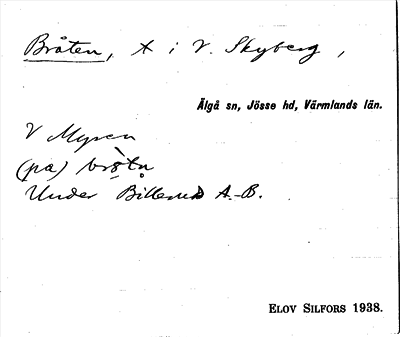 Bråten, x i V. Skyberg,
Älgå sn, Jösse hd, Värmlands län.
V Myren
(pa)
Under Billerud A.-B.
ELOV SILFORS 1938.